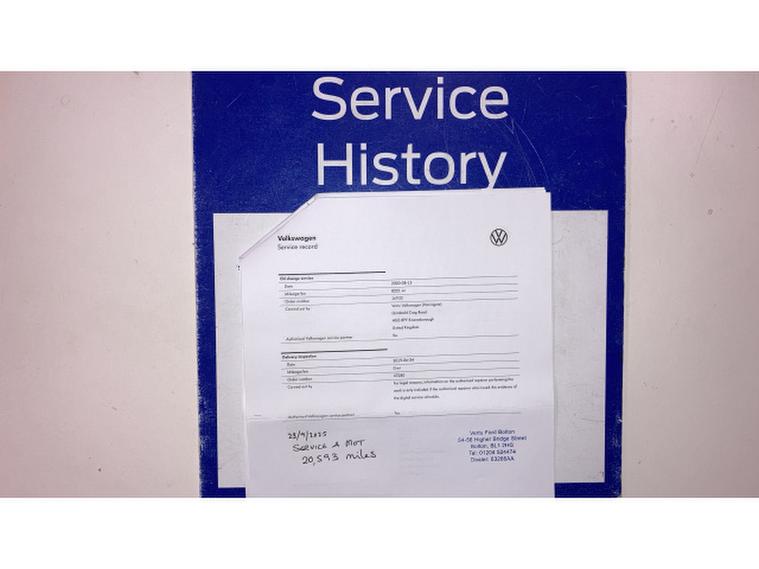 Service
History
Volkswagen
Service record
Oil change service
Date 2020-08-13
Mileage/km
Order number
Carried out by Vertu Volkswagen (Harrogate)
Grimbald Crag Road
Knaresborough
United Kingdom
Authorised Volkswagen service partner Yes
Delivery inspection
Date
Mileage/km 0 mi
Order number
Carried out by For legal reasons, information on the authorised repairer performing the
work is only included if the authorised repairer who issued the evidence of
the digital service schedule.
Authorised Volkswagen service partner Yes
23/9/2025
SERVICE & MOT
20,593 miles
Vertu Ford Bolton
54-56 Higher Bridge Street
Bolton, BL1 2HG
Tel: 01204
Dealer: